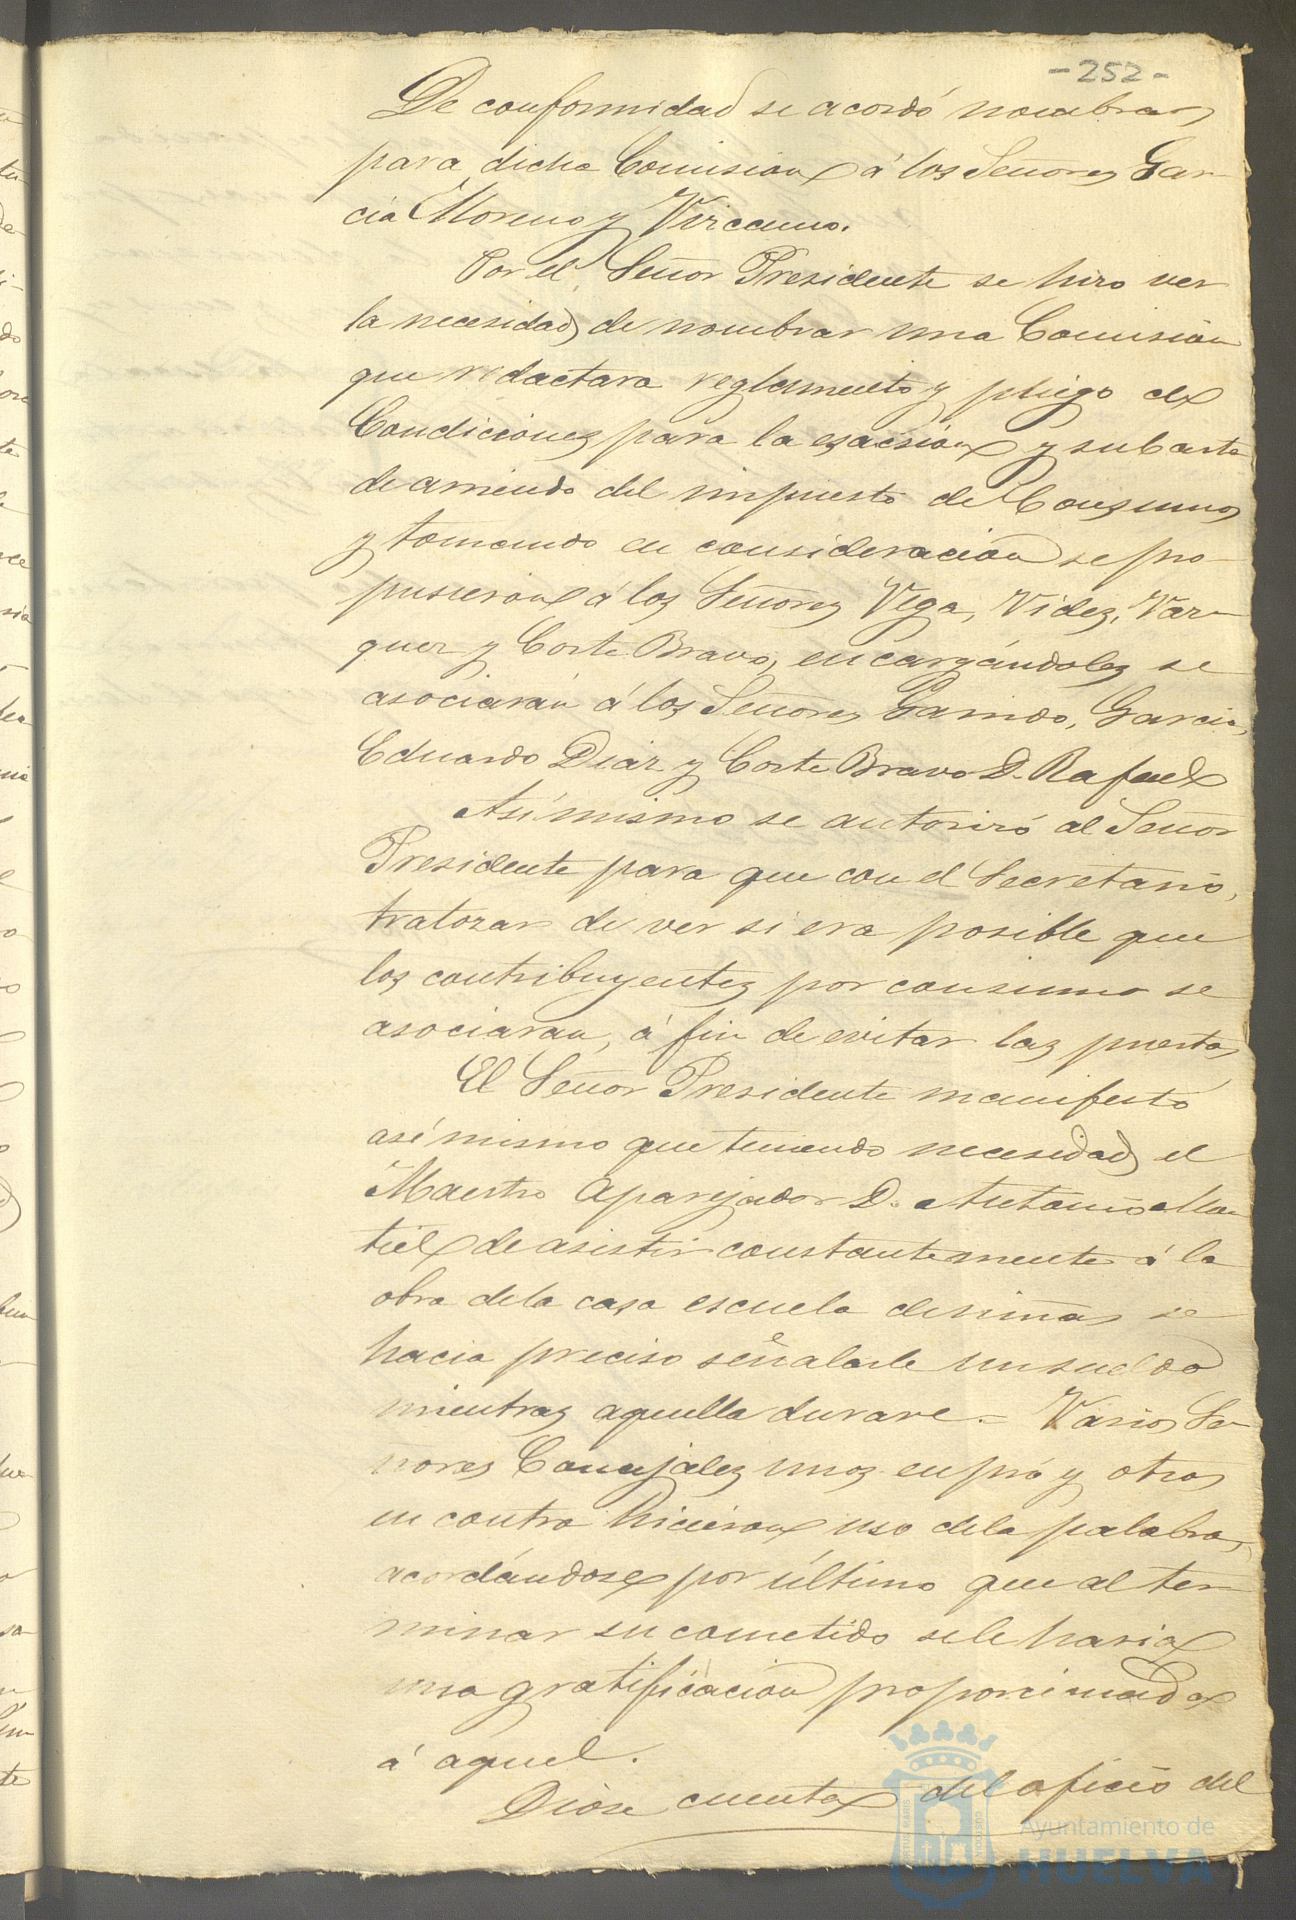 - 252 -
De conformidad se acordó nombrar
para dicha Comision á los Señores Gar-
cia Moreno y Vizcaino.
Por el Señor Presidente se hizo ver
la necesidad de nombrar una Comision
que redactara reglamento y pliego de
Condiciones para la esaccion y subasta
de arriendo del impuesto de Consumos
y tomando en consideracion se pro-
pusieron á los Señores Vega, Vides, Vaz-
quez y Corte Bravo, encargándoles se
asociaran á los Señores Garrido, Garcia,
Eduardo Diaz y Corte Bravo D. Rafael
Asi mismo se autorizó al Señor
Presidente para que con el Secretario,
tratozar de ver si era posible que
los contribuyentes por consumo se
asociaran, á fin de evitar las puertas
El Señor Presidente manifestó
asi mismo que teniendo necesidad el
Maestro Aparejador D. Antonio Mon
tiel de asistir constantemente á la
obra de la casa escuela de niñas se
hacia preciso señalarle un sueldo
mientras aquella durare. - Varios Se-
ñores Concejales unos en pró y otros
en contra hicieron uso de la palabra,
acordándose por último que al ter-
minar su cometido se le haria
una gratificacion proporcionada
á aquel.
Dióse cuenta del oficio del
Ayuntamiento de
HUELVA